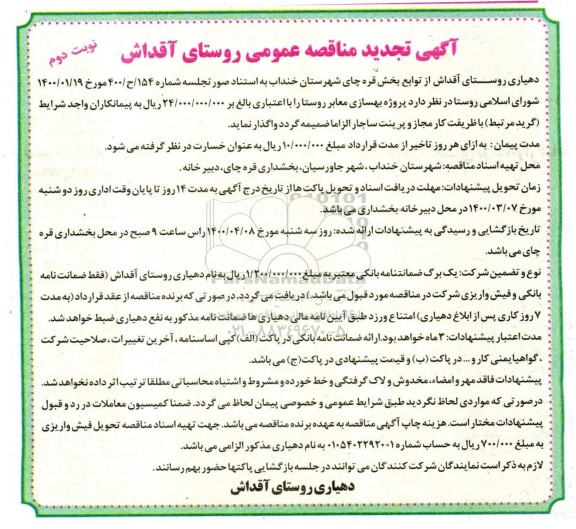 آگهی تجدید مناقصه عمومی روستای آقداش
نوبت دوم
دهیاری روستای آقداش از توابع بخش قره چای شهرستان خنداب به استناد صورتجلسه شماره ۱۵۴/ح/۴۰۰ مورخ ۱۴۰۰/۰۱/۱۹
شورای اسلامی روستا در نظر دارد پروژه بهسازی معابر روستا را با اعتباری بالغ بر ۲۴/۰۰۰/۰۰۰/۰۰۰ ریال به پیمانکاران واجد شرایط
(گرید مرتبط) با ظرفیت کار مجاز و پرینت ساجار الزاما ضمیمه گردد واگذار نماید.
مدت پیمان: به ازای هر روز تاخیر از مدت قرارداد مبلغ ۱۰/۰۰۰/۰۰۰ ریال به عنوان خسارت در نظر گرفته می شود.
محل تهیه اسناد مناقصه: شهرستان خنداب، شهر جاورسیان، بخشداری قره چای، دبیر خانه.
زمان تحویل پیشنهادات: مهلت دریافت اسناد و تحویل پاکت ها از تاریخ درج آگهی به مدت ۱۴ روز تا پایان وقت اداری روز دو شنبه
مورخ ۱۴۰۰/۰۳/۰۷ در محل دبیر خانه بخشداری می باشد.
تاریخ بازگشایی و رسیدگی به پیشنهادات ارائه شده: روز سه شنبه مورخ ۱۴۰۰/۰۴/۰۸ راس ساعت ۹ صبح در محل بخشداری قره
چای می باشد.
نوع و تضمین شرکت: یک برگ ضمانتنامه بانکی معتبر به مبلغ ۱/۲۰۰/۰۰۰/۰۰۰ ریال به نام دهیاری روستای آقداش (فقط ضمانت نامه
بانکی و فیش واریزی شرکت در مناقصه مورد قبول می باشد.) دریافت می گردد. در صورتی که برنده مناقصه از عقد قرارداد (به مدت
۷ روز کاری پس از ابلاغ دهیاری) امتناع ورزد طبق آیین نامه مالی دهیاری ها ضمانت نامه مذکور به نفع دهیاری ضبط خواهد شد.
مدت اعتبار پیشنهادات: ۳ ماه خواهد بود. ارائه ضمانت نامه بانکی در پاکت (الف) کپی اساسنامه، آخرین تغییرات، صلاحیت شرکت
، گواهی‌ایمنی کار و... در پاکت (ب) و قیمت پیشنهادی در پاکت(ج) می باشد.
پیشنهادات فاقد مهر و امضاء، مخدوش و لاک گرفتگی و خط خورده و مشروط و اشتباه محاسباتی مطلقا ترتیب اثر داده نخواهد شد.
در صورتی که مواردی لحاظ نگردید طبق شرایط عمومی و خصوصی پیمان لحاظ می گردد. ضمنا کمیسیون معاملات در رد و قبول
پیشنهادات مختار است. هزینه چاپ آگهی مناقصه به عهده برنده مناقصه می باشد. جهت تهیه اسناد مناقصه تحویل فیش واریزی
به مبلغ ۷۰۰/۰۰۰ ریال به حساب شماره ۰۱۰۵۴۰۲۲۹۲۰۰۱ به نام دهیاری مذکور الزامی می باشد.
لازم به ذکر است نمایندگان شرکت کنندگان می توانند در جلسه بازگشایی پاکتها حضور بهم رسانند.
دهیاری روستای آقداش
ParsNamadData
۰۲۱-۸۸۳۴۹۶۷۰-۵